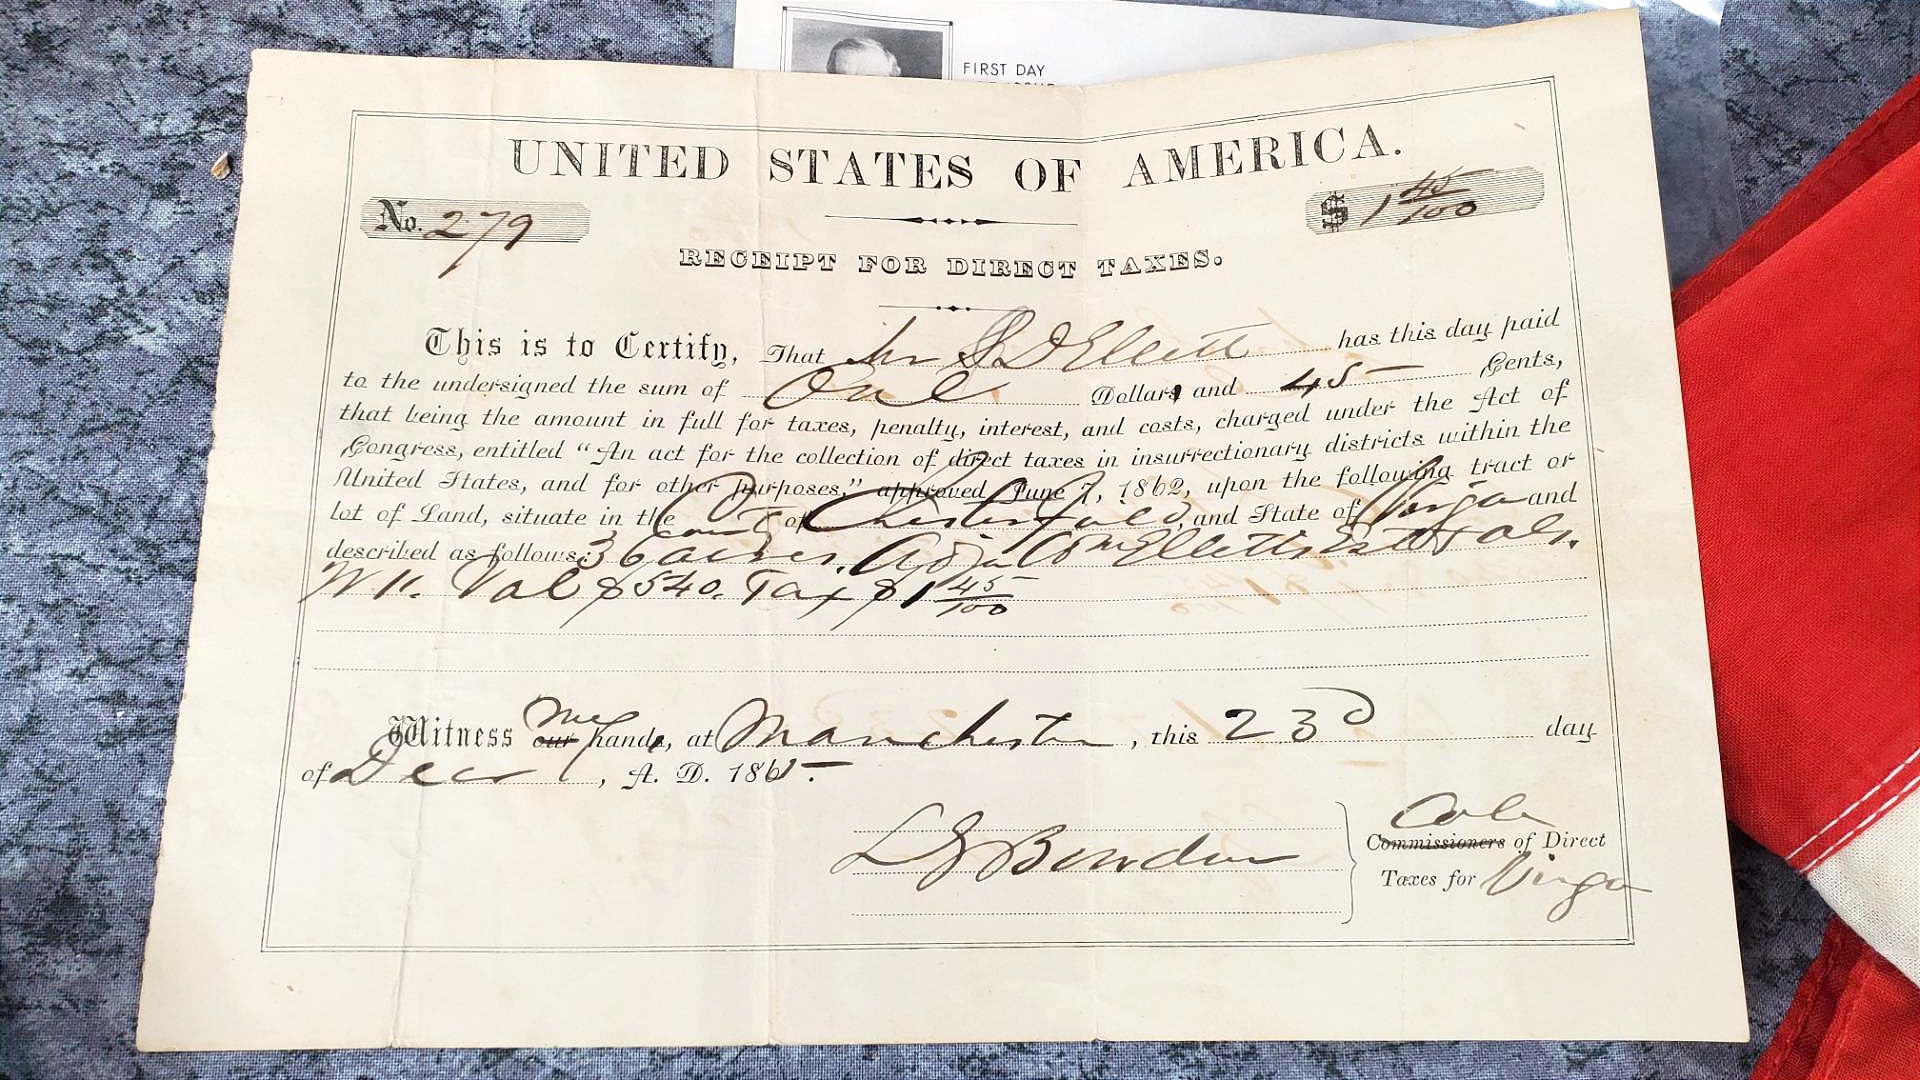 FIRST DAY
UNITED STATES OF AMERICA.
No. 279
$ 1 45/100
RECEIPT FOR DIRECT TAXES.
This is to Certify, That D Ellett has this day paid
to the undersigned the sum of One Dollar, and 45 Cents,
that being the amount in full for taxes, penalty, interest, and costs, charged under the Act of
Congress, entitled "An act for the collection of direct taxes in insurrectionary districts within the
United States, and for other purposes," approved June 7, 1862, upon the following tract or
lot of Land, situate in the County of Chesterfield, and State of Virga and
described as follows: 36 acres. Adjn Wm Elletts Est
Val $540. Tax $1 45/100
Witness our my hand, at Manchester, this 23d day
of Decr, A. D. 1865.
L G Bowden
Commissioners of Direct
Taxes for Virga